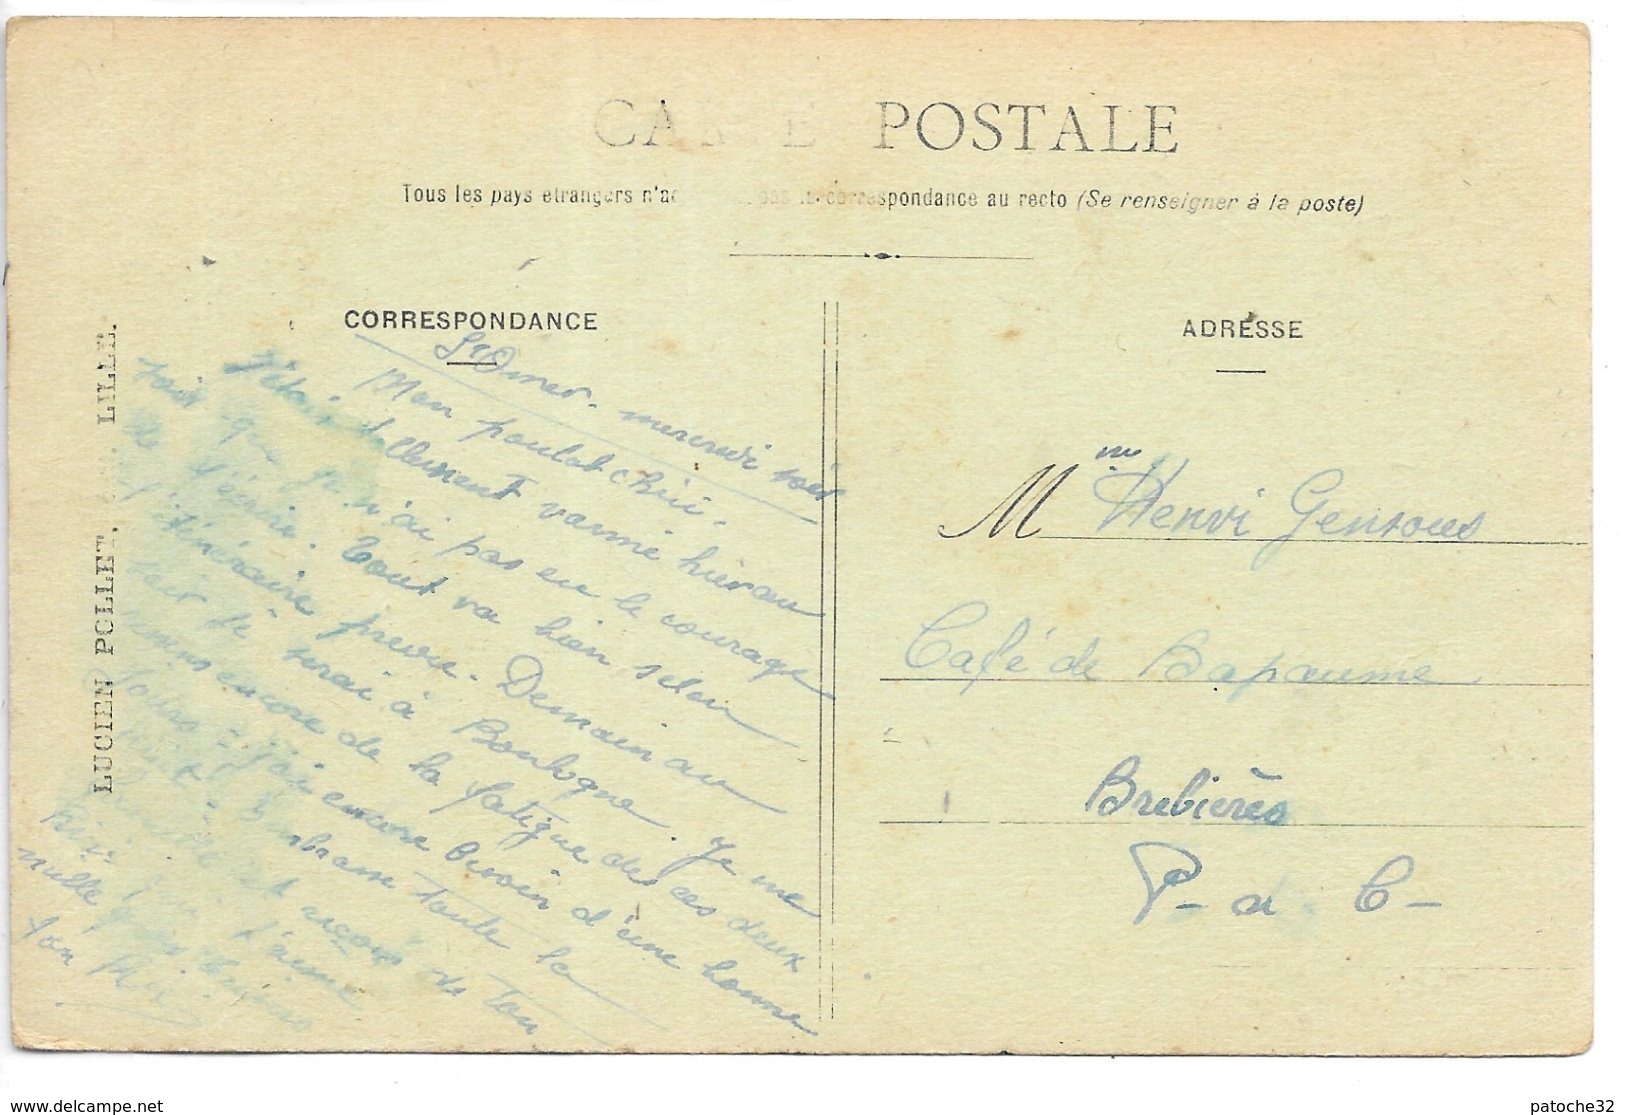 CARTE POSTALE
Tous les pays étrangers n'ac pas la correspondance au recto (Se renseigner à la poste)
CORRESPONDANCE
ADRESSE
LUCIEN POLLET, LILLE.
St Omer. mercredi soir
Mon poulot chéri.
J'étais tellement vanné hier au
soir que je n'ai pas eu le courage
de t'écrire. Tout va bien selon
l'itinéraire prévu. Demain au
soir je serai à Boulogne. Je me
ressens encore de la fatigue de ces deux
jours = j'ai encore besoin d'une bonne
nuit. Embrasse toute la
et reçois de ton
Riri qui t'aime
mille gros baisers
ton Riri
Mme Henri Gensous
Café de Bapaume
Brebières
P- d. C-
www.delcampe.net
patoche32